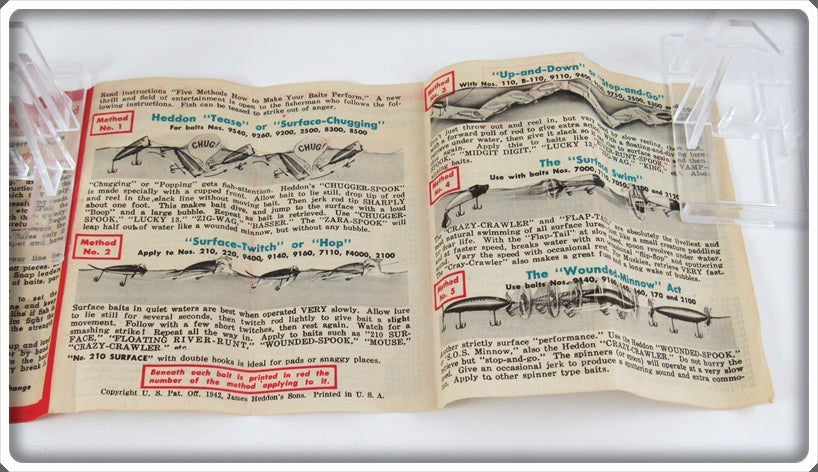 Read instructions "Five Methods How to Make Your Baits Perform." A new
thrill and field of entertainment is open to the fisherman who follows the fol-
lowing instructions. Fish can be teased to strike out of anger.
Method
No. 1
Heddon "Tease" or "Surface-Chugging"
For baits Nos. 9540, 9260, 9200, 2500, 8300, 8500
CHUG!
CHUG!
"Chugging" or "Popping" gets fish-attention. Heddon's "CHUGGER-SPOOK"
is made specially with a cupped front. Allow bait to lie still, drop tip of rod
and reel in the slack line without moving bait. Then jerk rod tip SHARPLY
about one foot. This makes bait dive, and jump to the surface with a loud
"Boop" and a large bubble. Repeat as bait is retrieved. Use "CHUGGER-
SPOOK," "LUCKY 13," "ZIG-WAG," "BASSER." The "ZARA-SPOOK" will
leap half out of water like a wounded minnow, but without any bubble.
Method
No. 2
"Surface-Twitch" or "Hop"
Apply to Nos. 210, 220, 9400, 9140, 9160, 7110, F4000, 2100
Surface baits in quiet waters are best when operated VERY slowly. Allow lure
to lie still for several seconds, then twitch rod lightly to give bait a slight
movement. Follow with a few short twitches, then rest again. Watch for a
smashing strike! Repeat all the way in. Apply to baits such as "210 SUR-
FACE," "FLOATING RIVER-RUNT," "WOUNDED-SPOOK," "MOUSE,"
"CRAZY-CRAWLER" etc.
"No. 210 SURFACE" with double hooks is ideal for pads or snaggy places.
Beneath each bait is printed in red the
number of the method applying to it.
Copyright U. S. Pat. Off. 1942, James Heddon's Sons. Printed in U. S. A.
Method
No. 3
"Up-and-Down" or "Stop-and-Go"
With Nos. 110, B-110, 9110, 9400, 9750, 2500, 8300
Don't just throw out and reel in, but vary by slow reeling, then
forward pull of rod to give extra a floating-and-diving lure
under water, then give it slack so to surface again
Apply this to baits like "RIVER-RUNT-SPOOK," and then
SPOOK," "MIDGIT DIGIT," "LUCKY 13," ZIG-WAG," "KING," "VAMP-
baits. Also
Method
No. 4
The "Surface Swim"
Use with baits Nos. 7000, 7050, 2100 and 2120
"CRAZY-CRAWLER" and "FLAP-TAIL" are absolutely the liveliest and
natural swimming of all surface lures, just like a small creature paddling
for dear life. With the "Flap-Tail" at slow speed, spoon revolves under water,
at faster speed, breaks water with an occasional "flip-flop" and sputtering
Vary the speed with occasional rest. For Muskies, retrieve VERY fast.
The "Crazy-Crawler" also makes a great fuss and long wake of bubbles.
Method
No. 5
The "Wounded-Minnow" Act
Use baits Nos. 9140, 9160, 140, 160, 170 and 2100
Another strictly surface "performance." Use the Heddon "WOUNDED-SPOOK,"
"S.O.S. Minnow," also the Heddon "CRAZY-CRAWLER." Do not hurry the
retrieve but "stop-and-go." The spinners (or spoon) will operate at a very slow
Give an occasional jerk to produce a sputtering sound and extra commo-
tion. Apply to other spinner type baits.